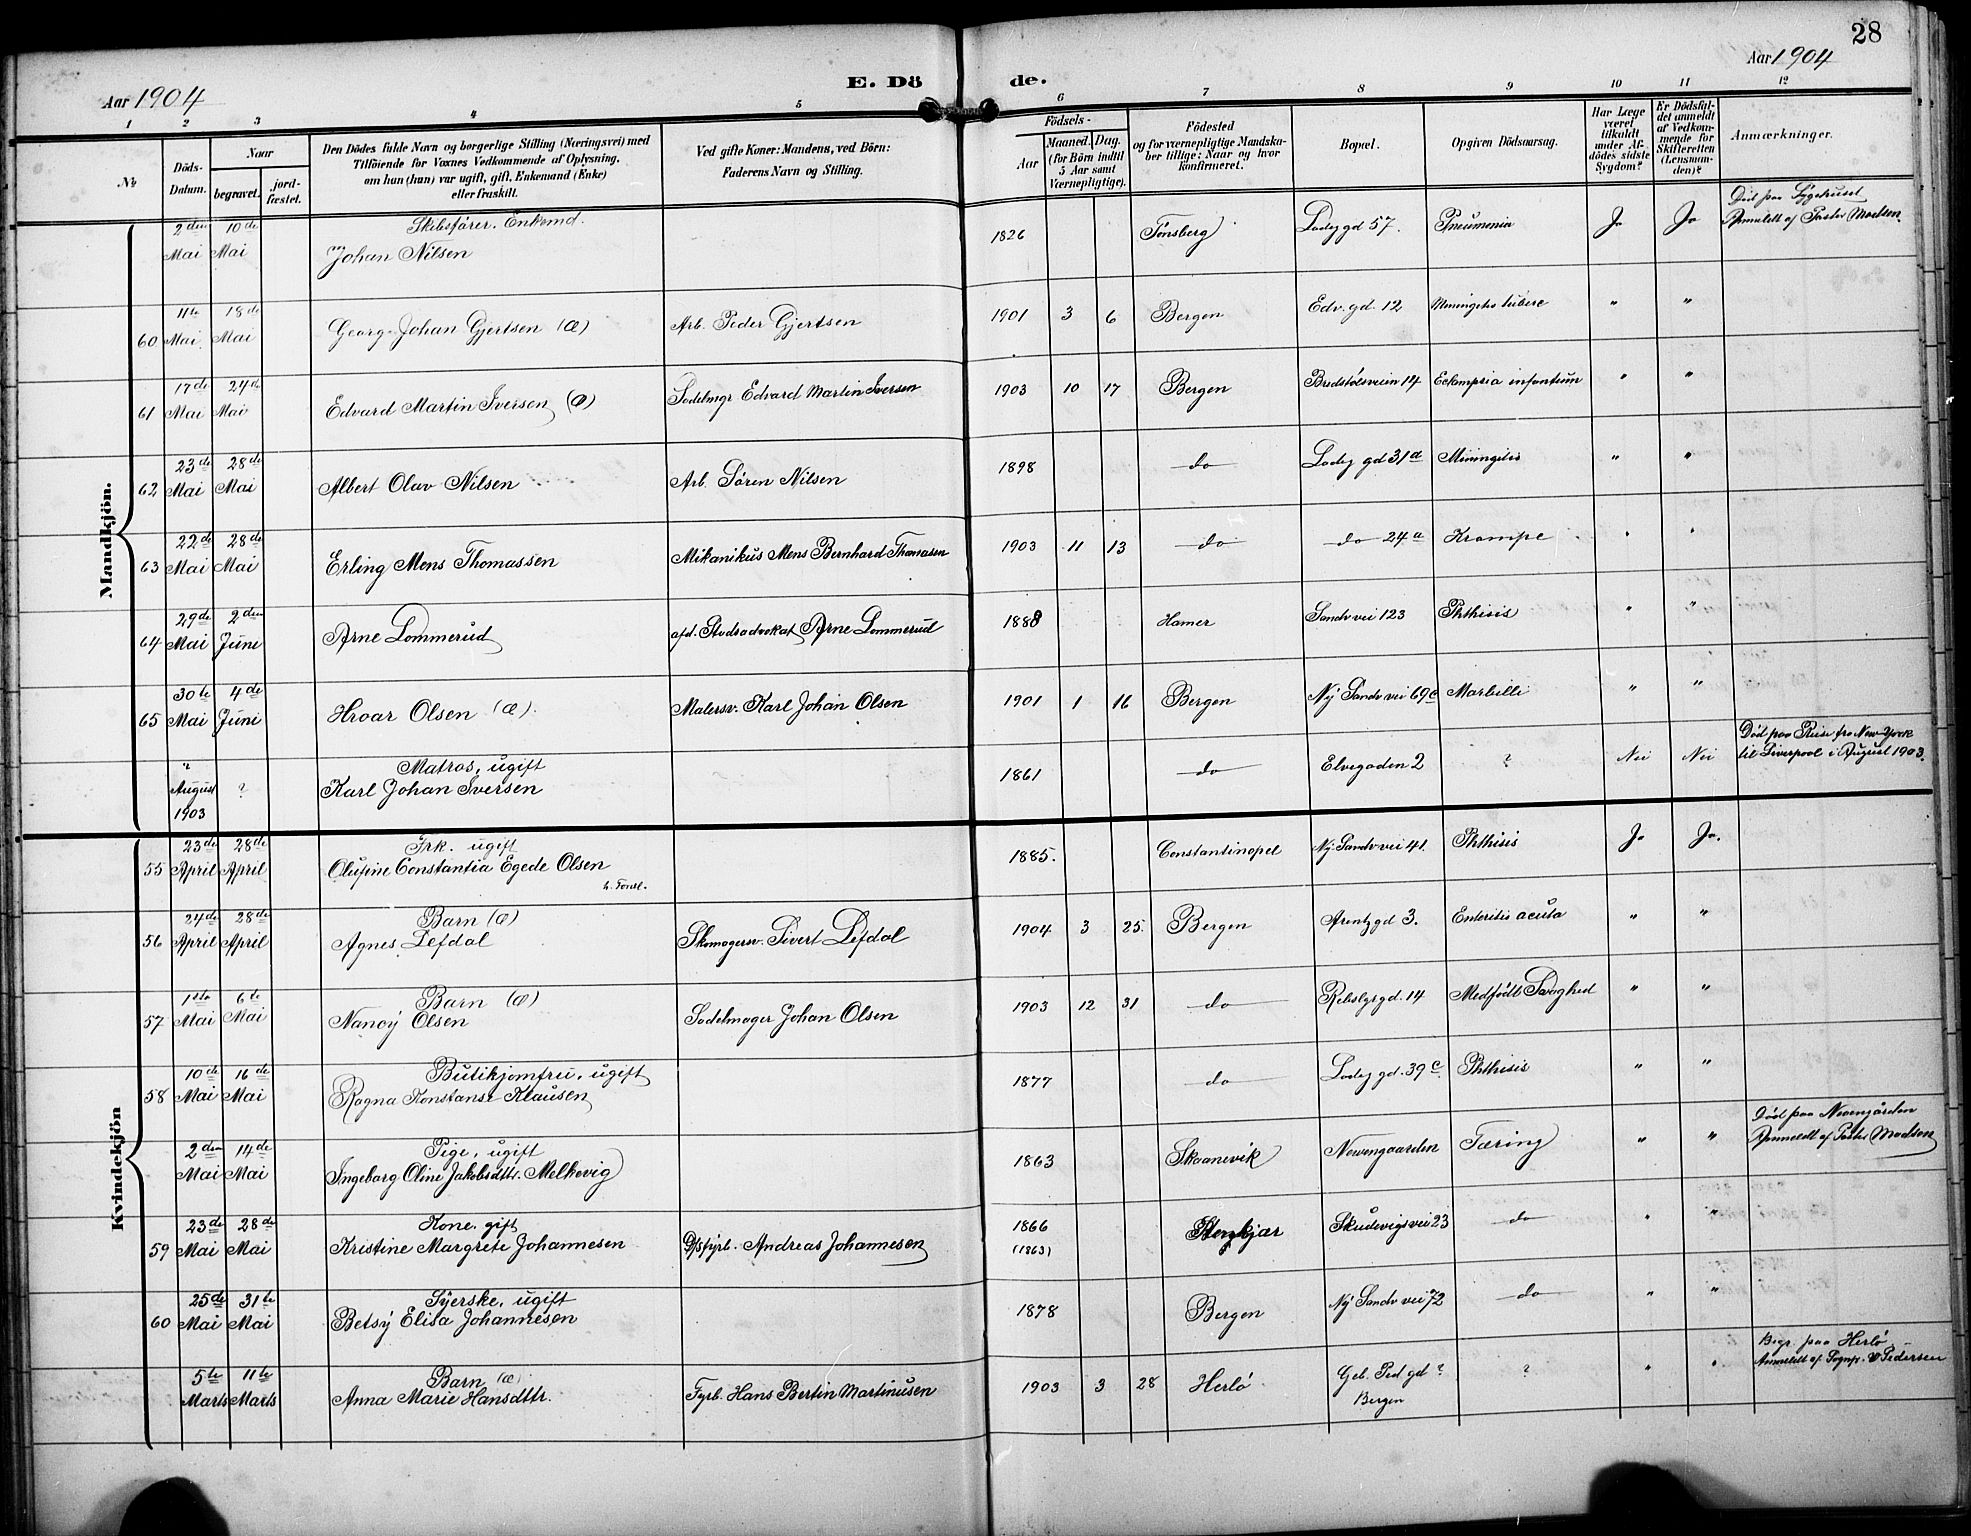 28
Aar 1904
E. Dö de.
Aar 1904
1 2 3 4 5 6 7 8 9 10 11 12
No
Döds-Datum.
Naar
begravet.
jord-fæstet.
Den Dödes fulde Navn og borgerlige Stilling (Næringsvei) med
Tilföiende for Voxnes Vedkommende af Oplysning,
om han (hun) var ugift, gift, Enkemand (Enke)
eller fraskilt.
Ved gifte Koner: Mandens, ved Börn:
Faderens Navn og Stilling.
Födsels-
Aar
Maaned. Dag.
(for Börn indtil
5 Aar samt
Værnepligtige).
Födested
og for værnepligtige Mandska-
ber tillige: Naar og hvor
konfirmeret.
Bopæl.
Opgiven Dödsaarsag.
Har Læge
været
tilkaldt
under Af-
dödes sidste
Sygdom?
Er Dödsfal-
det anmeldt
af Vedkom-
mende for
Skifteretten
(Lensman-
den)?
Anmærkninger.
Mandkjön.
2den Mai 10de Mai Skibsfører. Enkemd. Johan Nilsen 1826 Tönsberg Ladegd 57. Pneumonia Ja Ja Död paa Sygehuset Anmeldt af Pastor Madsen
60 11te Mai 18de Mai Georg Johan Gjertsen (Æ) Arb. Peder Gjertsen 1901 3 6 Bergen Edv. gd. 12 Meningitis tuberc " "
61 17de Mai 24de Mai Edvard Martin Iversen (Æ) Sadelmgr Edvard Martin Iversen 1903 10 17 Bergen Bredstølsveien 14 Eclampsia infantum " "
62 23de Mai 28de Mai Albert Olav Nilsen Arb. Sören Nilsen 1898 do Ladeg gd 31a Miningitis " "
63 22de Mai 28de Mai Erling Mons Thomassen Mikanikus Mons Bernhard Thomasen 1903 11 13 do do 24a Krampe " "
64 29de Mai 2den Juni Arne Lommerud afd. Stadsadvokat Arne Lommerud 1888 Hamar Sandv vei 123 Phthisis " "
65 30te Mai 4de Juni Hroar Olsen (Æ). Malersv. Karl Johan Olsen 1901 1 16 Bergen Ny Sandv vei 69c Morbilli " "
" August 1903 ? Matros, ugift Karl Johan Iversen 1861 do Elvegaden 2 ? Nei Nei Død paa Reise fra New York til Liverpool i August 1903.
Kvindekjön
55 23de April 28de April Frk. ugift Olufine Constantia Egede Olsen 1885. Constantinopel Ny Sandv vei 41. Phthisis Ja Ja.
56 24de April 28de April Barn (Æ) Agnes Lefdal Skomagersv. Sivert Lefdal 1904 3 25. Bergen Arentz gd 3. Enteritis acuta " "
57 1ste Mai 6te Mai Barn (Æ) Nancy Olsen Sadelmager Johan Olsen 1903 12 31 do Rebslgr gd. 14 Medfödt Svaghed " "
58 10de Mai 16de Mai Butikjomfru, ugift Ragna Konstanse Klausen 1877 do Ladeg gd. 39c. Phthisis " "
2den Mai 14de Mai Pige, ugift Ingeborg Oline Jakobsdttr. Melkevig 1863 Skaanevik Nevengaarden Tæring " " Död paa Nevengården Anmeldt af Pastor Madsen
59 23de Mai 28de Mai Kone, gift Kristine Margrete Johannesen D/sfyrb. Andreas Johannesen 1866 (1863) Stenkjær Skudevigsvei 23 do " "
60 25de Mai 31te Mai Syerske, ugift Betsy Elisa Johannesen 1878 Bergen Ny Sandv vei 72 do " "
5te Marts 11te Marts Barn (Æ) Anna Marie Hansdttr. Fyrb. Hans Bertin Martinusen 1903 3 28 Herlö Geb. Ped. gd ? Bergen ? " " Begr. paa Herlö Anmeldt af Sognp. Pedersen